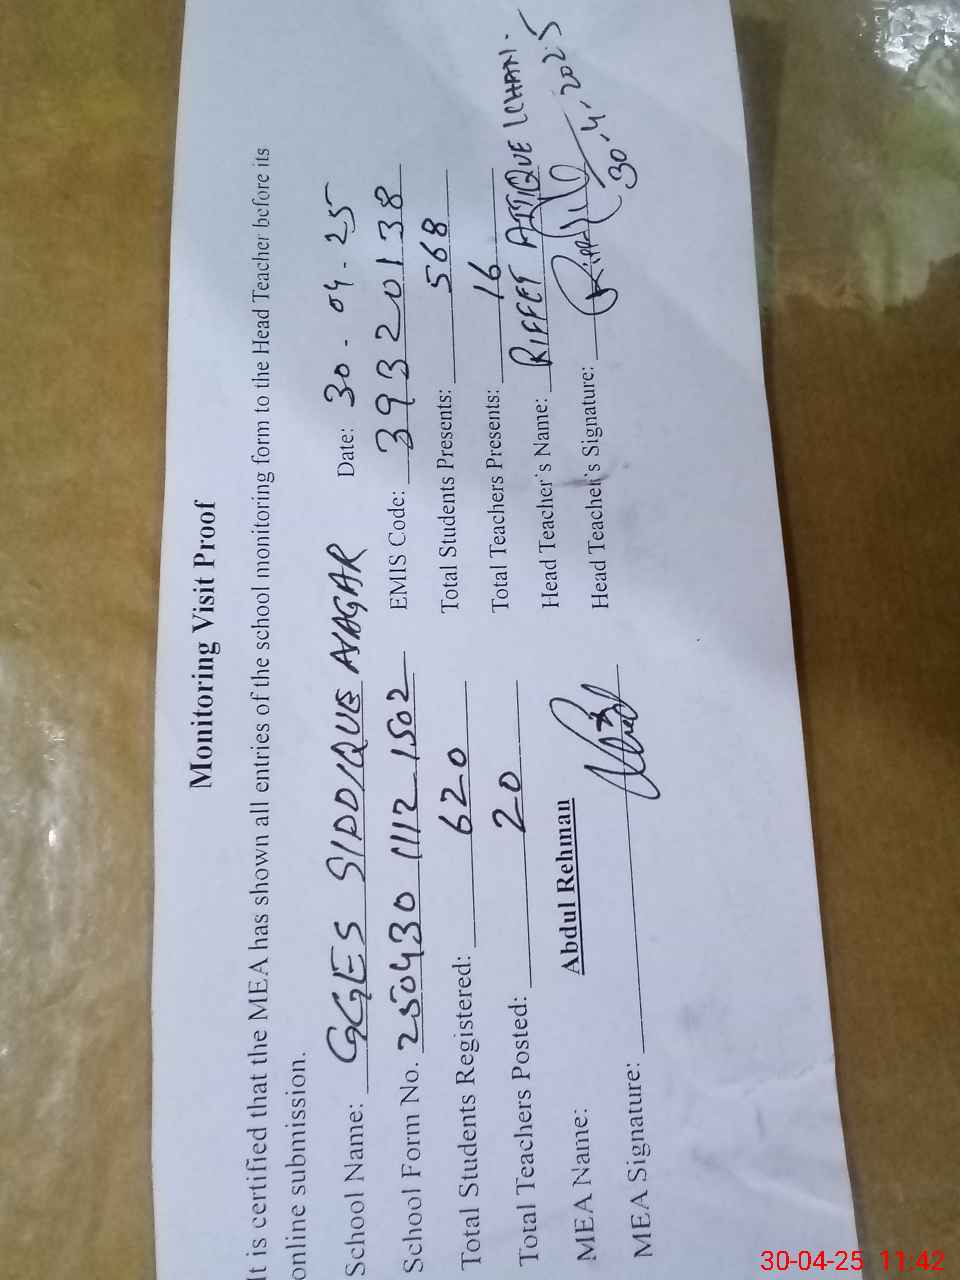 Monitoring Visit Proof
It is certified that the MEA has shown all entries of the school monitoring form to the Head Teacher before its
online submission.
School Name: GGES SIDDIQUE NAGAR Date: 30-04-25
School Form No. 250430 1112 1502 EMIS Code: 39320138
Total Students Registered: 620 Total Students Presents: 568
Total Teachers Posted: 20 Total Teachers Presents: 16
MEA Name: Abdul Rehman Head Teacher's Name: RIFFET ATTIQUE
MEA Signature: Head Teacher's Signature: 30.4.2025
30-04-25 11:42